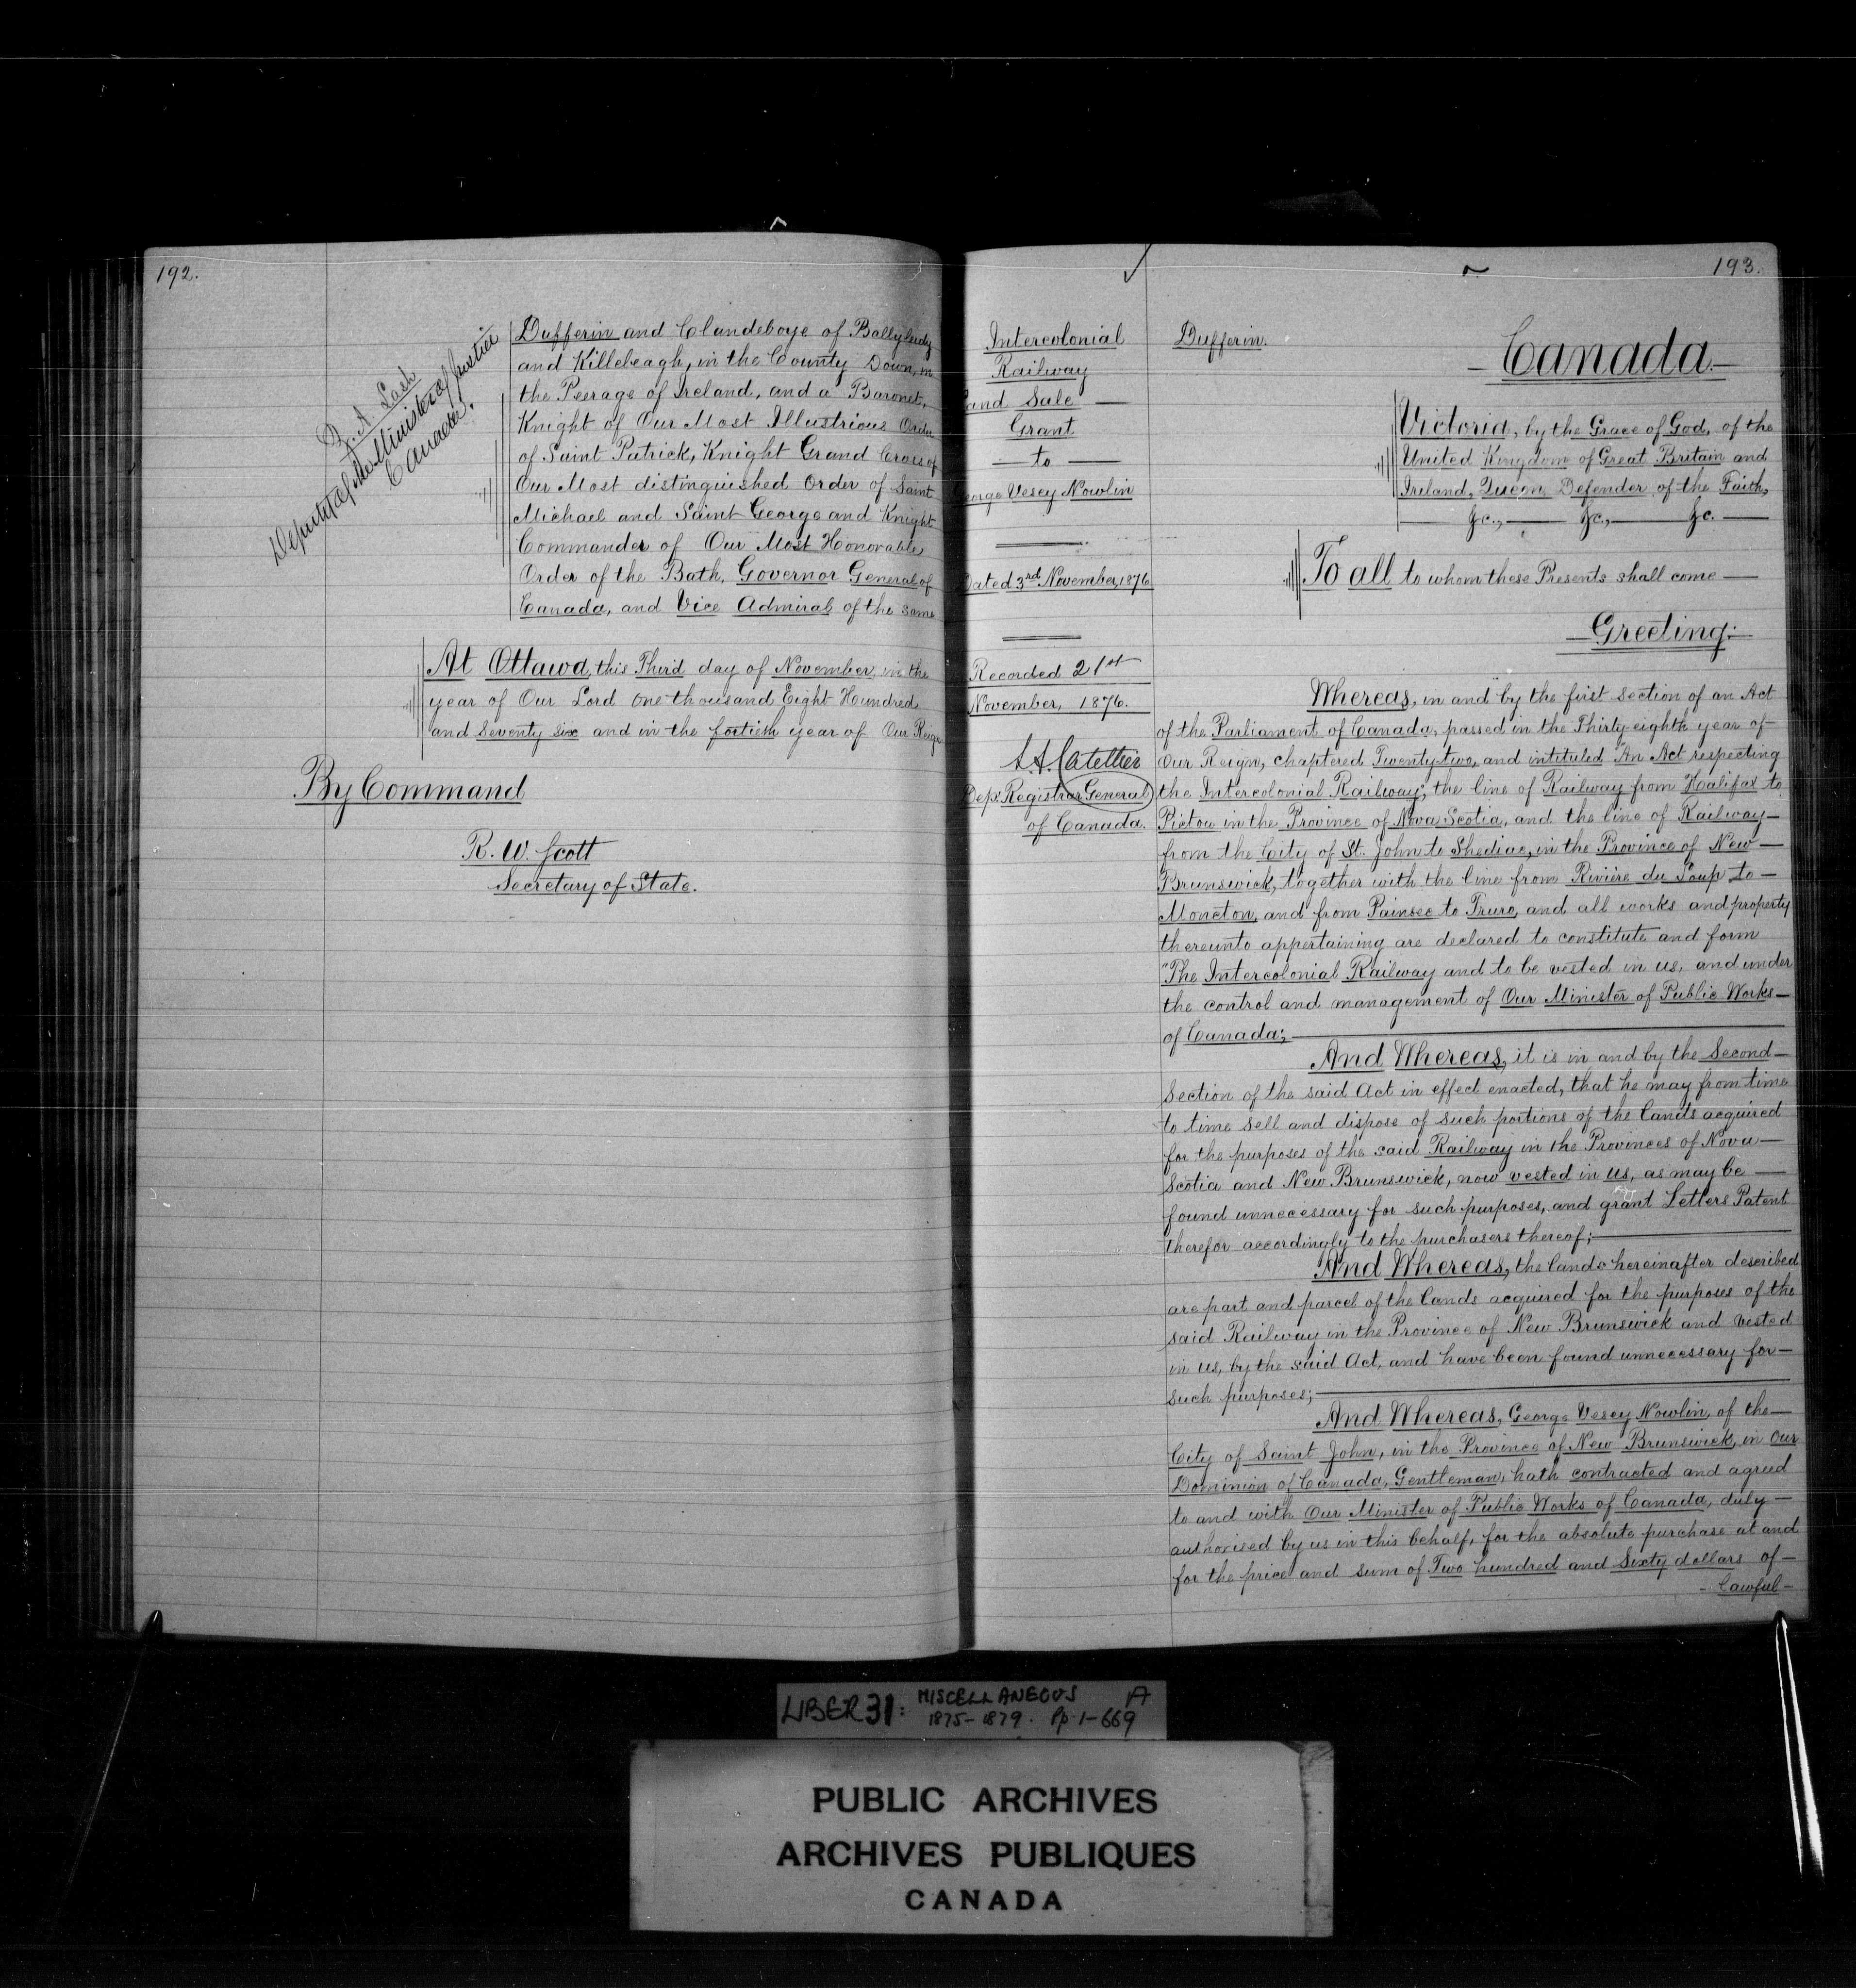 192.
Z. A. Lash
Deputy of the Minister of Justice
Canada.
Dufferin and Clandeboye of Ballyleidy
and Killeleagh, in the County Down, in
the Peerage of Ireland, and a Baronet,
Knight of Our Most Illustrious Order
of Saint Patrick, Knight Grand Cross of
Our Most distinguished Order of Saint
Michael and Saint George and Knight
Commander of Our Most Honorable
Order of the Bath, Governor General of
Canada, and Vice Admiral of the same
At Ottawa, this Third day of November, in the
year of Our Lord one thousand Eight Hundred
and Seventy Six and in the fortieth year of Our Reign
By Command
R. W. Scott
Secretary of State.
193.
Intercolonial
Railway
Land Sale —
Grant
— to —
George Vesey Nowlin
Dated 3rd November, 1876
Recorded 21st
November, 1876.
Catellier
Depy. Registrar General
of Canada.
Dufferin.
— Canada. —
Victoria, by the Grace of God, of the
United Kingdom of Great Britain and
Ireland, Queen, Defender of the Faith,
— &c., — &c., — &c. —
To all to whom these Presents shall come —
— Greeting: —
Whereas, in and by the first section of an Act
of the Parliament of Canada, passed in the Thirty eighth year of —
Our Reign, chaptered Twenty-two, and intituled "An Act respecting
the Intercolonial Railway", the line of Railway from Halifax to
Pictou in the Province of Nova Scotia, and the line of Railway —
from the City of St. John to Shediac, in the Province of New —
Brunswick, together with the line from Rivière du Loup to —
Moncton, and from Painsec to Truro, and all works and property
thereunto appertaining are declared to constitute and form
"The Intercolonial Railway and to be vested in us, and under
the control and management of Our Minister of Public Works —
of Canada; —
And Whereas, it is in and by the Second —
Section of the said Act in effect enacted, that he may from time
to time sell and dispose of such portions of the lands acquired
for the purposes of the said Railway in the Provinces of Nova —
Scotia and New Brunswick, now vested in us, as may be —
found unnecessary for such purposes, and grant Letters Patent
therefor accordingly to the purchasers thereof; —
And Whereas, the lands hereinafter described
are part and parcel of the lands acquired for the purposes of the
said Railway in the Province of New Brunswick and vested
in us, by the said Act, and have been found unnecessary for —
such purposes; —
And Whereas, George Vesey Nowlin, of the —
City of Saint John, in the Province of New Brunswick, in Our
Dominion of Canada, Gentleman, hath contracted and agreed
to and with Our Minister of Public Works of Canada, duly —
authorised by us in this behalf, for the absolute purchase at and
for the price and sum of Two hundred and Sixty dollars of —
- Lawful -
LIBER 31: MISCELLANEOUS A
1875-1879. Pp. 1-669
PUBLIC ARCHIVES
ARCHIVES PUBLIQUES
CANADA